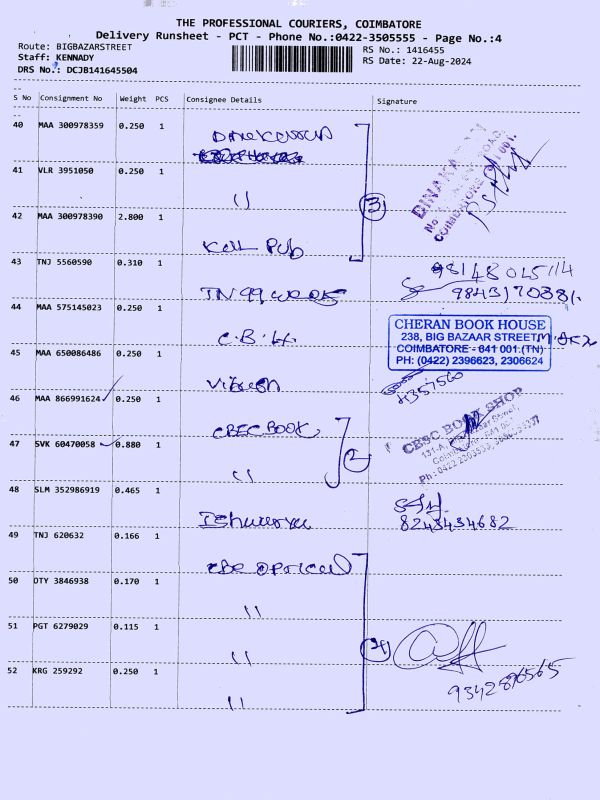 THE PROFESSIONAL COURIERS, COIMBATORE
Delivery Runsheet - PCT - Phone No.:0422-3505555 - Page No.:4
Route: BIGBAZARSTREET
RS No.: 1416455
Staff: KENNADY
RS Date: 22-Aug-2024
DRS No.: DCJB141645504
S No Consignment No Weight PCS Consignee Details Signature
40 MAA 300978359 0.250 1
41 VLR 3951050 0.250 1 "
3
DINAKARAN
COIMBATORE 641 001.
42 MAA 300978390 2.800 1 Kall Pub
43 TNJ 5560590 0.310 1
9843170381
44 MAA 575145023 0.250 1 C.B.H.
CHERAN BOOK HOUSE
238, BIG BAZAAR STREET
COIMBATORE - 641 001.(TN)
PH: (0422) 2396623, 2306624
45 MAA 650086486 0.250 1
4357560
46 MAA 866991624 0.250 1 CBSC BOOK
CBSC BOOK SHOP
47 SVK 60470058 0.880 1 "
2
48 SLM 352986919 0.465 1 Ishwarya
8243434682
49 TNJ 620632 0.166 1 CBE OPTICAL
50 OTY 3846938 0.170 1 "
51 PGT 6279029 0.115 1 "
4
52 KRG 259292 0.250 1 "